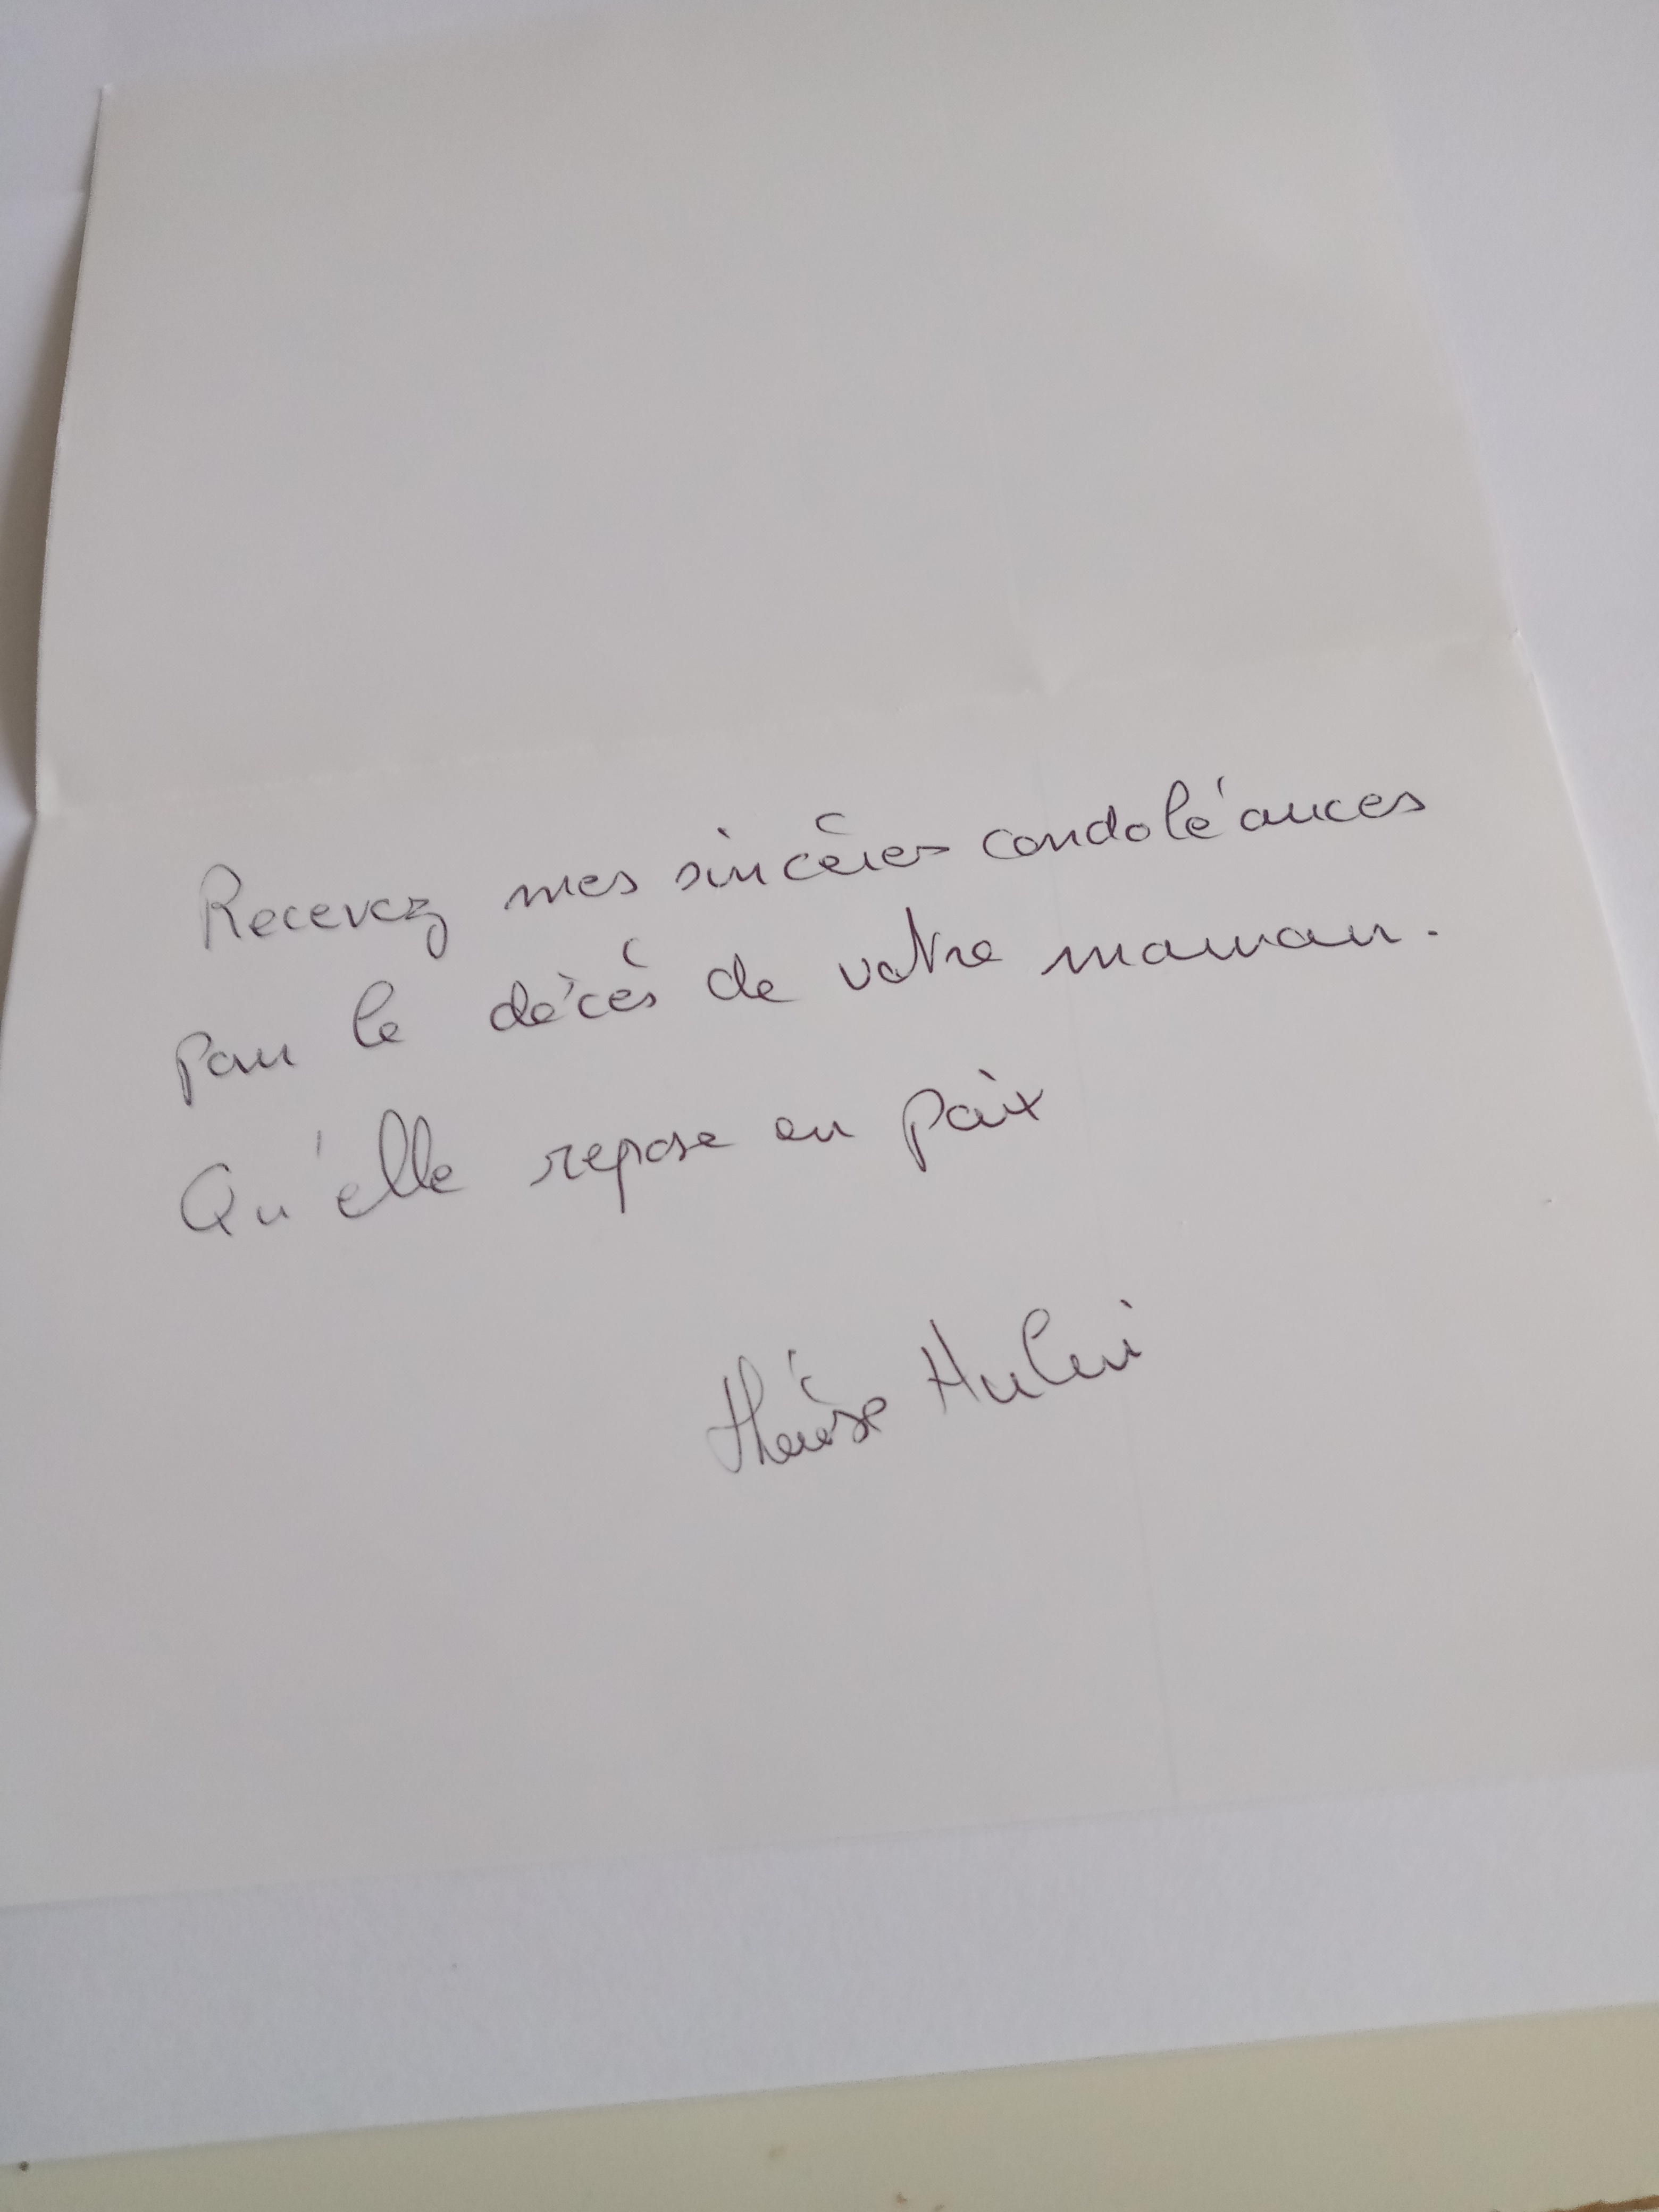 Recevez mes sincères condoléances
pour le décès de votre maman.
Qu'elle repose en paix
Thérèse